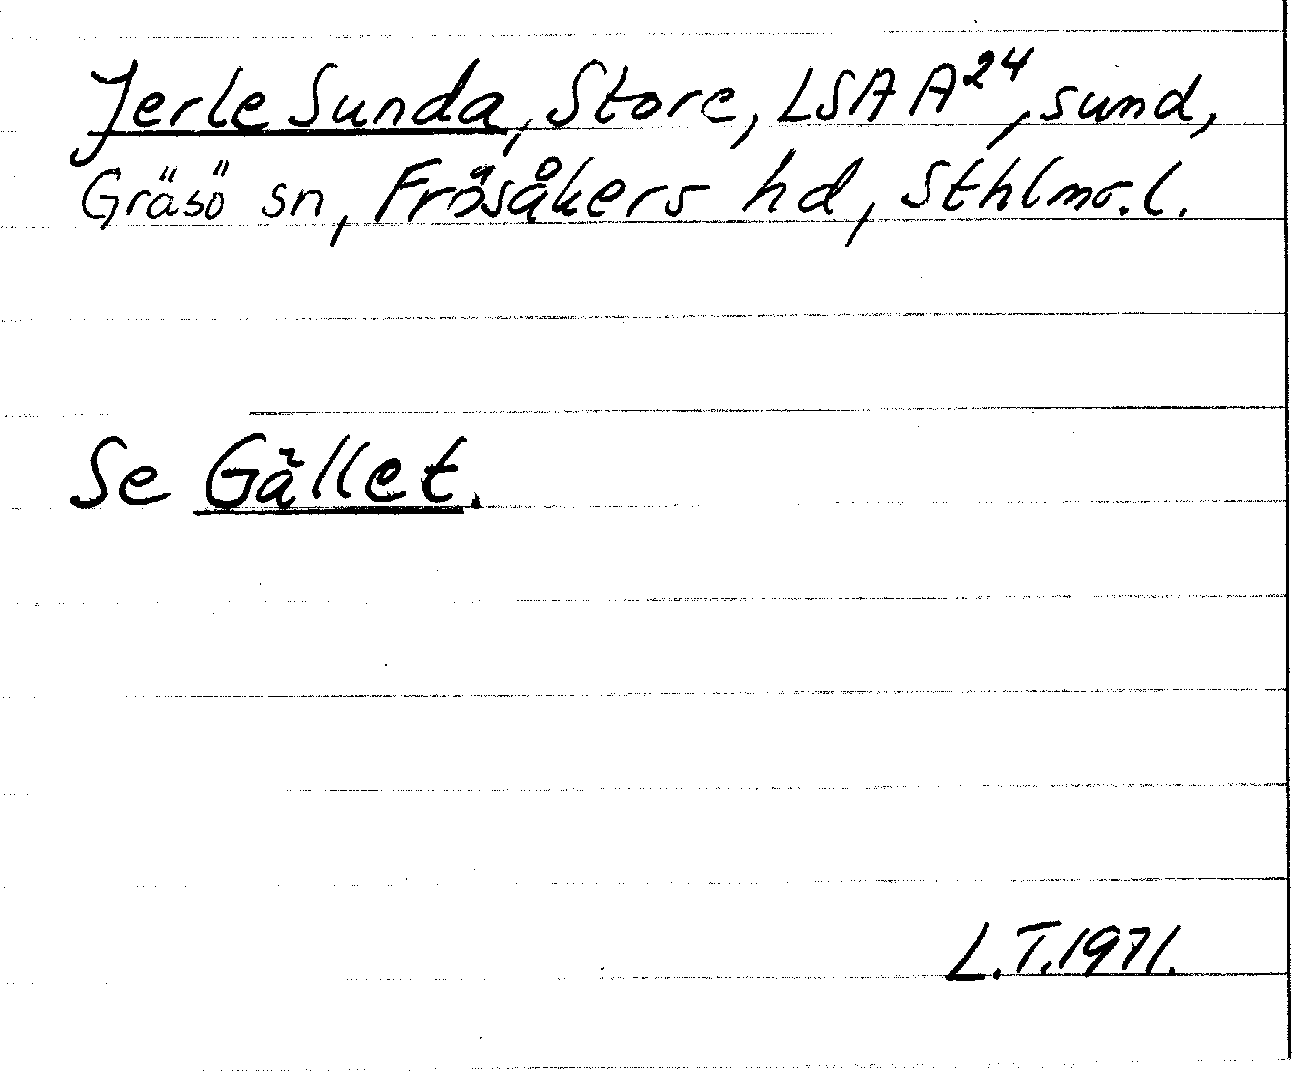 Jerle Sunda, Store, LSA A²⁴, sund,
Gräsö sn, Frösåkers hd, Sthlms. l.
Se Gället.
L.T. 1971.